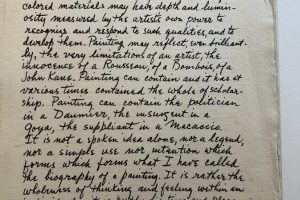 colored materials may have depth and lumin-
osity measured by the artist's own power to
recognize and respond to such qualities, and to
develop them. Painting may reflect, even brilliant-
ly, the very limitations of an artist, the
innocence of a Rousseau, of a Bombois, of a
John Kane. Painting can contain and it has at
various times contained the whole of scholar-
ship. Painting can contain the politician
in a Daumier, the insurgent in a
Goya, the suppliant in a Masaccio.
It is not a spoken idea alone, nor a legend,
nor a simple use nor intention which
forms what I have called
the biography of a painting. It is rather the
wholeness of thinking and feeling within an